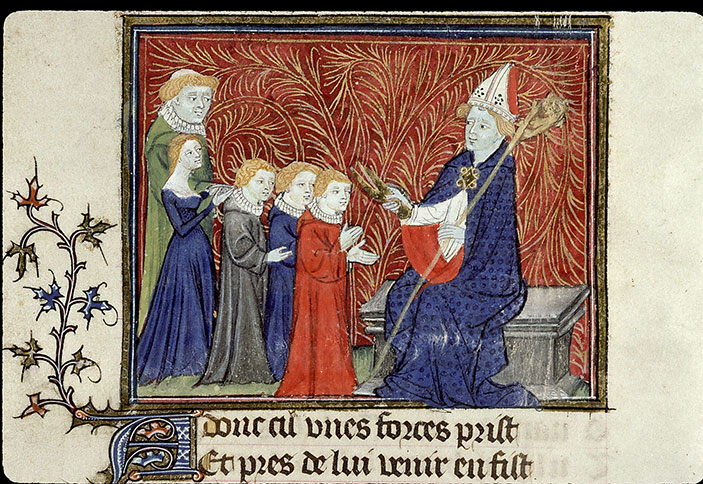 Adonc cil unes forces prist
Et pres de lui venir en fist